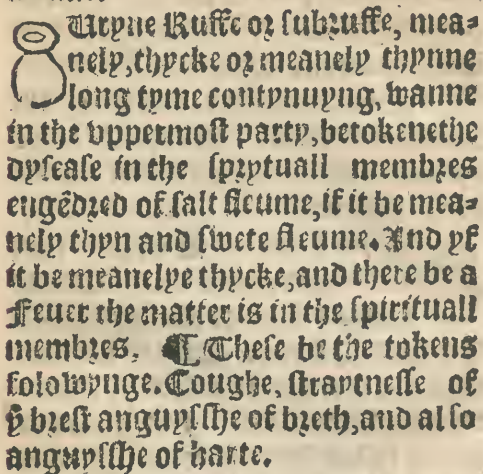 Uryne Ruffe or subruffe, mea-
nely, thycke or meanely thynne
long tyme contynuyng, wanne
in the vppermost party, betokenethe
dysease in the sprytuall membres
engēdred of salt fleume, if it be mea-
nely thyn and swete fleume. And yf
it be meanelye thycke, and there be a
Feuer the matter is in the spirituall
membres. ¶ These be the tokens
folowynge. Coughe, straytnesse of
yͤ brest anguysshe of breth, and also
anguysshe of harte.